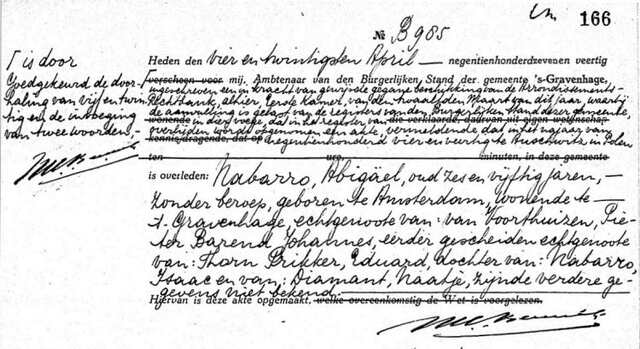 166
№ B985
T is door
Goedgekeurd de door-
haling van vijf en twin-
tig en de invoeging
van twee woorden,-
Heden den vier en twintigsten April — negentienhonderdzeven en veertig
verscheen voor mij, Ambtenaar van den Burgerlijken Stand der gemeente 's-Gravenhage,
ingeschreven en in kracht van gewijsde gegane beschikking van de Arrondissements-
Rechtbank, alhier, Eerste Kamer, van den twaalfden Maart van dit jaar, waarbij
de aanvulling is gelast van de registers van den Burgerlijken Stand dezer gemeente,
wonende in dier voege, dat in het register van die verklaarde, daarvan uit eigen wetenschap
overlijden wordt opgenomen een akte, vermeldende, dat in het najaar van
kennis dragende, dat op negentienhonderd vier en veertig Auschwitz in Polen
ten uur minuten, in deze gemeente
is overleden: Nabarro, Abigaël, oud zes en vijftig jaren, —
zonder beroep, geboren te Amsterdam, wonende te-
's-Gravenhage, echtgenoote van: van Voorthuizen, Pie-
ter Barend Johannes, eerder gescheiden echtgenoote
van: Thorn Prikker, Eduard, dochter van: Nabarro,
Isaac en van: Diamant, Naatje, zijnde verdere ge-
gevens niet bekend.
Hiervan is deze akte opgemaakt, welke overeenkomstig de Wet is voorgelezen.